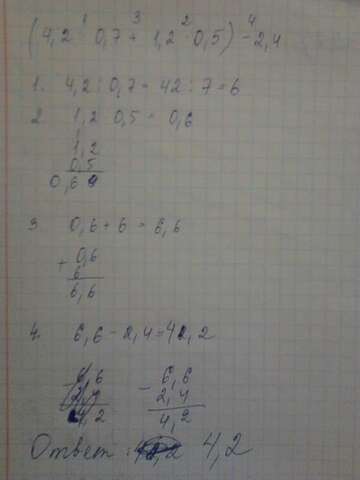 1 3 2 4
(4,2 : 0,7 + 1,2 · 0,5) - 2,4
1. 4,2 : 0,7 = 42 : 7 = 6
2 1,2 · 0,5 = 0,6
1,2
0,5
0,60
3 0,6 + 6 = 6,6
+ 0,6
6
6,6
4. 6,6 - 2,4 = 4,2
- 6,6
2,4
4,2
Ответ: 4,2